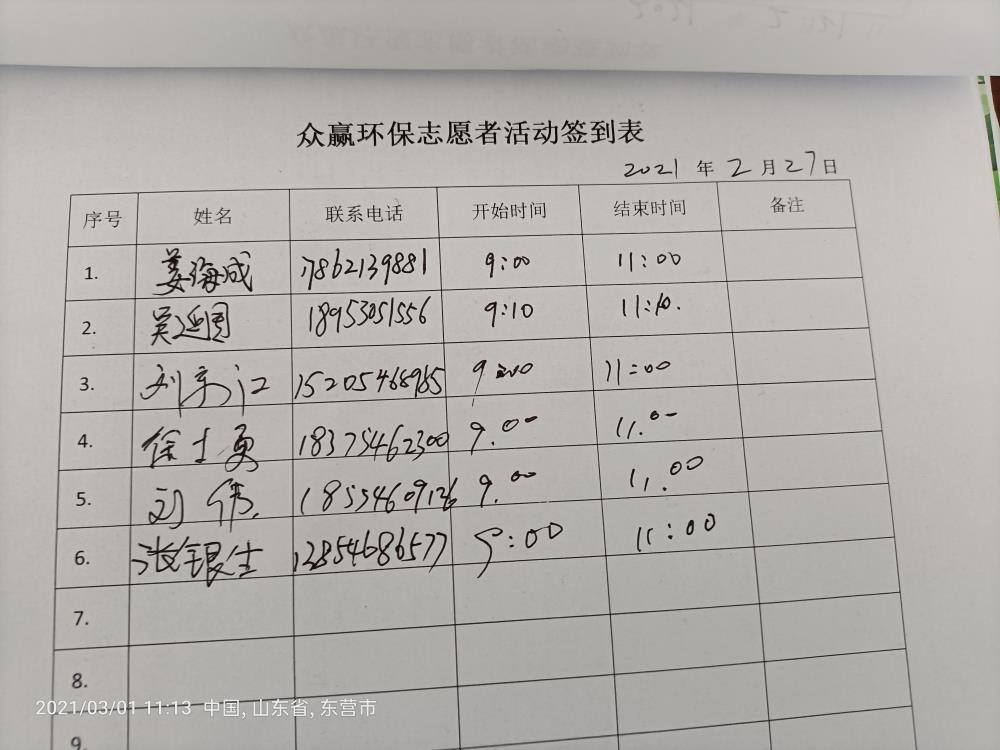 众赢环保志愿者活动签到表
2021 年 2 月 27 日
序号 姓名 联系电话 开始时间 结束时间 备注
1. 姜海成 17862139881 9:00 11:00
2. 吴延国 18953051556 9:10 11:10.
3. 刘东江 15205468985 9:00 11:00
4. 徐士勇 18375462300 9.00 11.00
5. 刘伟. 18554609126 9.00 11.00
6. 张银生 12854686577 9:00 11:00
7.
8.
9.
2021/03/01 11:13 中国, 山东省, 东营市